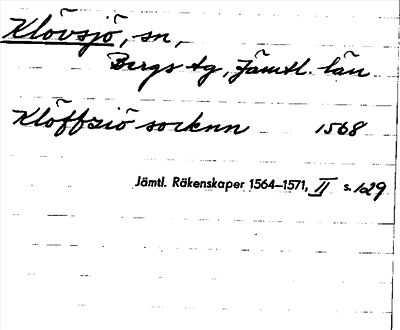 Klövsjö, sn,
Bergs tg, Jämtl. län
Klöffsiö socknn 1568
Jämtl. Räkenskaper 1564–1571, II s. 129